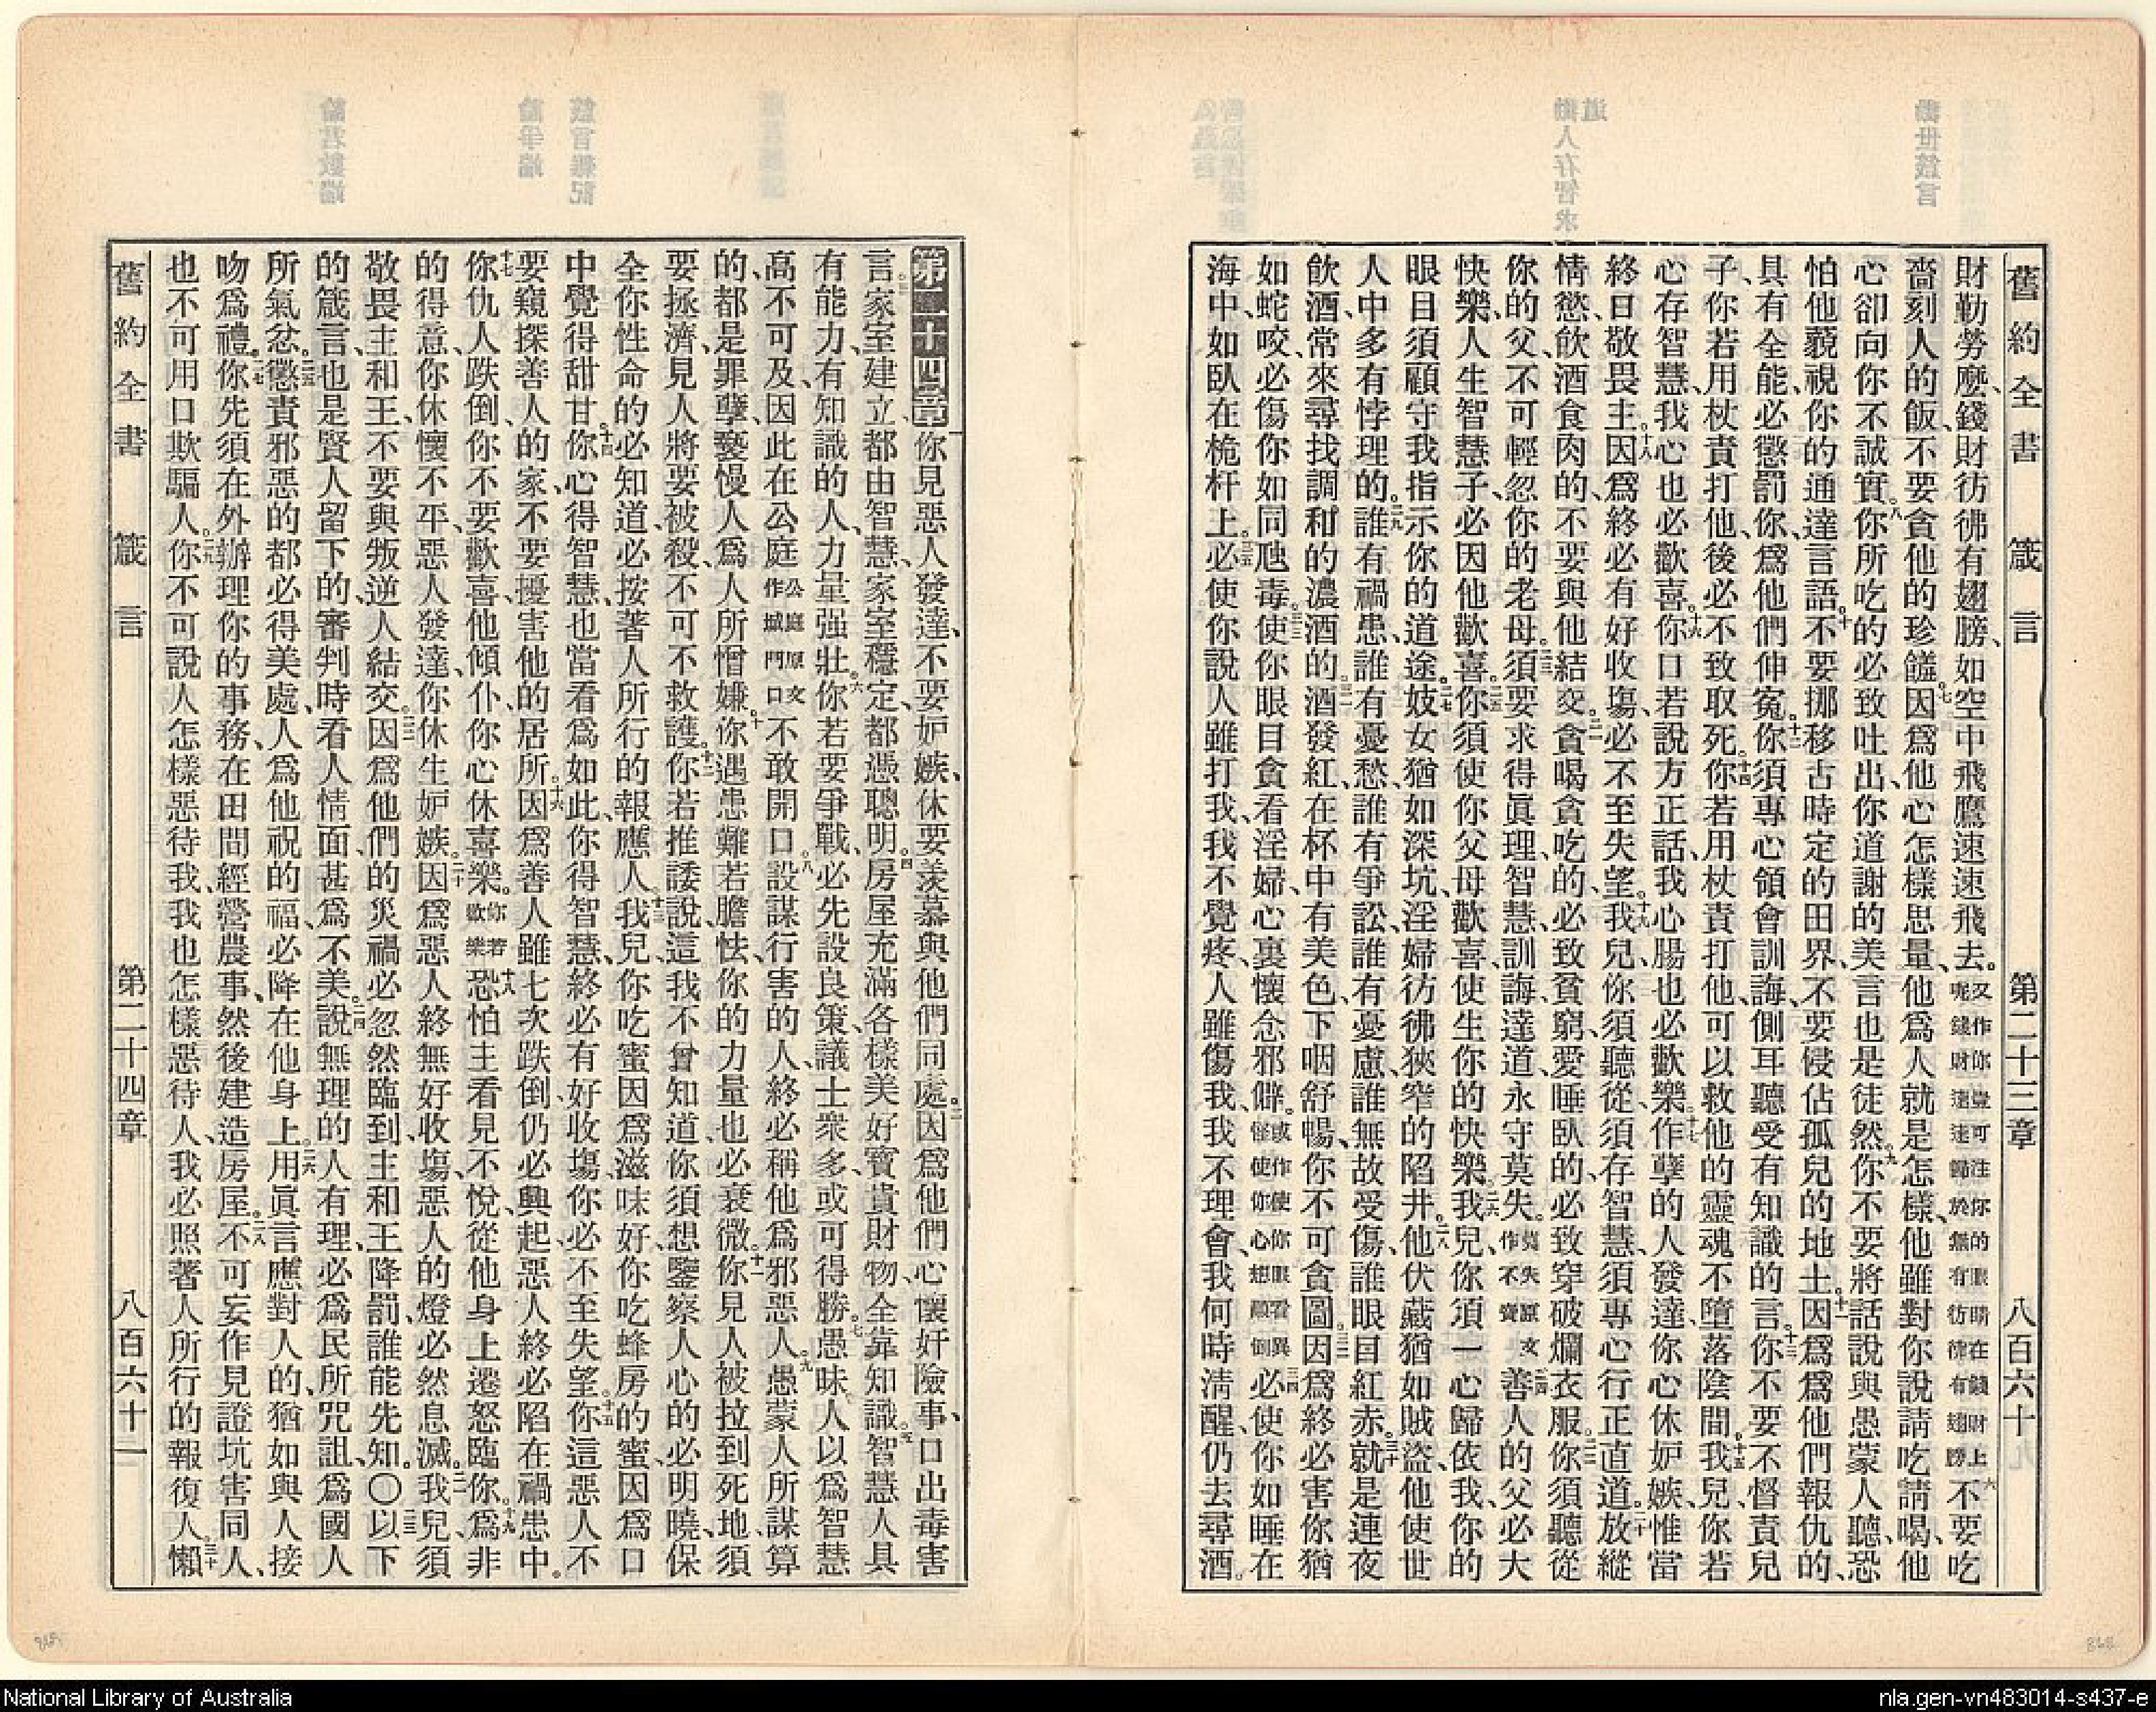 舊約全書 箴言 第二十三章 八百六十
財勤勞麽、錢財彷彿有翅膀、如空中飛鷹速速飛去。又作你豈可注你的眼睛在錢財上呢錢財速速歸於無有彷彿有翅膀六不要吃
嗇刻人的飯、不要貪他的珍饈。七因爲他心怎樣思量、他爲人就是怎樣、他雖對你說請吃請喝、他
心卻向你不誠實。八你所吃的必致吐出、你道謝的美言也是徒然。九你不要將話說與愚蒙人聽、恐
怕他藐視你的通達言語。十不要挪移古時定的田界、不要侵佔孤兒的地土。十一因爲他們報仇的、
具有全能、必懲罰你、爲他們伸冤。十二你須專心領會訓誨、側耳聽受有知識的言。十三你不要不督責兒
子、你若用杖責打他、後必不致取死。十四你若用杖責打他、可以救他的靈魂不墮落陰間。十五我兒、你若
心存智慧、我心也必歡喜。十六你口若說方正話、我心腸也必歡樂。十七作孽的人發達、你心休妒嫉、惟當
終日敬畏主。十八因爲終必有好收塲、必不至失望。十九我兒、你須聽從、須存智慧、須專心行正直道。二十放縱
情慾、飲酒食肉的、不要與他結交。二一貪喝貪吃的、必致貧窮、愛睡臥的、必致穿破爛衣服。二二你須聽從
你的父、不可輕忽你的老母。二三須要求得眞理、智慧、訓誨、達道、永守莫失。莫失原文作不賣二四善人的父必大
快樂、人生智慧子、必因他歡喜。二五你須使你父母歡喜、使生你的快樂。二六我兒、你須一心歸依我、你的
眼目須顧守我指示你的道途。二七妓女猶如深坑、淫婦彷彿狹窄的陷井。二八他伏藏猶如賊盜、他使世
人中多有悖理的。二九誰有禍患、誰有憂愁、誰有爭訟、誰有憂慮、誰無故受傷、誰眼目紅赤。三十就是連夜
飲酒、常來尋找調和的濃酒的。三一酒發紅、在杯中有美色、下咽舒暢、你不可貪圖。三二因爲終必害你猶
如蛇咬、必傷你如同虺毒。三三使你眼目貪看淫婦、心裏懷念邪僻。或作使你眼看異怪使你心想顚倒三四必使你如睡在
海中、如臥在桅杆上。三五必使你說人雖打我、我不覺疼、人雖傷我、我不理會、我何時淸醒、仍去尋酒。
第二十四章 一你見惡人發達、不要妒嫉、休要羨慕與他們同處。二因爲他們心懷奸險事、口出毒害
言。三家室建立、都由智慧、家室穩定、都憑聰明。四房屋充滿各樣美好寶貴財物、全靠知識。五智慧人具
有能力、有知識的人、力量强壯。六你若要爭戰、必先設良策、議士衆多、或可得勝。七愚昧人以爲智慧
高不可及、因此在公庭公庭原文作城門口不敢開口。八設謀行害的人、終必稱他爲邪惡人。九愚蒙人所謀算
的、都是罪孽、褻慢人爲人所憎嫌。十你遇患難若膽怯、你的力量也必衰微。十一你見人被拉到死地、須
要拯濟、見人將要被殺、不可不救護。十二你若推諉說、這我不曾知道、你須想鑒察人心的必明曉、保
全你性命的必知道、必按著人所行的報應人。十三我兒、你吃蜜因爲滋味好、你吃蜂房的蜜、因爲口
中覺得甜甘。十四你心得智慧、也當看爲如此、你得智慧、終必有好收塲、你必不至失望。十五你這惡人、不
要窺探善人的家、不要擾害他的居所。十六因爲善人雖七次跌倒、仍必興起、惡人終必陷在禍患中。
十七你仇人跌倒、你不要歡喜、他傾仆、你心休喜樂。你若歡樂十八恐怕主看見不悅、從他身上遷怒臨你。十九爲非
的得意、你休懷不平、惡人發達、你休生妒嫉。二十因爲惡人終無好收塲、惡人的燈必然息滅。二一我兒、須
敬畏主和王、不要與叛逆人結交。二二因爲他們的災禍必忽然臨到、主和王降罰、誰能先知。〇二三以下
的箴言、也是賢人留下的、審判時看人情面、甚爲不美。二四說無理的人有理、必爲民所咒詛、爲國人
所氣忿。二五懲責邪惡的都必得美處、人爲他祝的福、必降在他身上。二六用眞言應對人的、猶如與人接
吻爲禮。二七你先須在外辦理你的事務、在田間經營農事、然後建造房屋。二八不可妄作見證坑害同人、
也不可用口欺騙人。二九你不可說、人怎樣惡待我、我也怎樣惡待人、我必照著人所行的報復人。三十懶
舊約全書 箴言 第二十四章 八百六十一
National Library of Australia
nla.gen-vn483014-s437-e